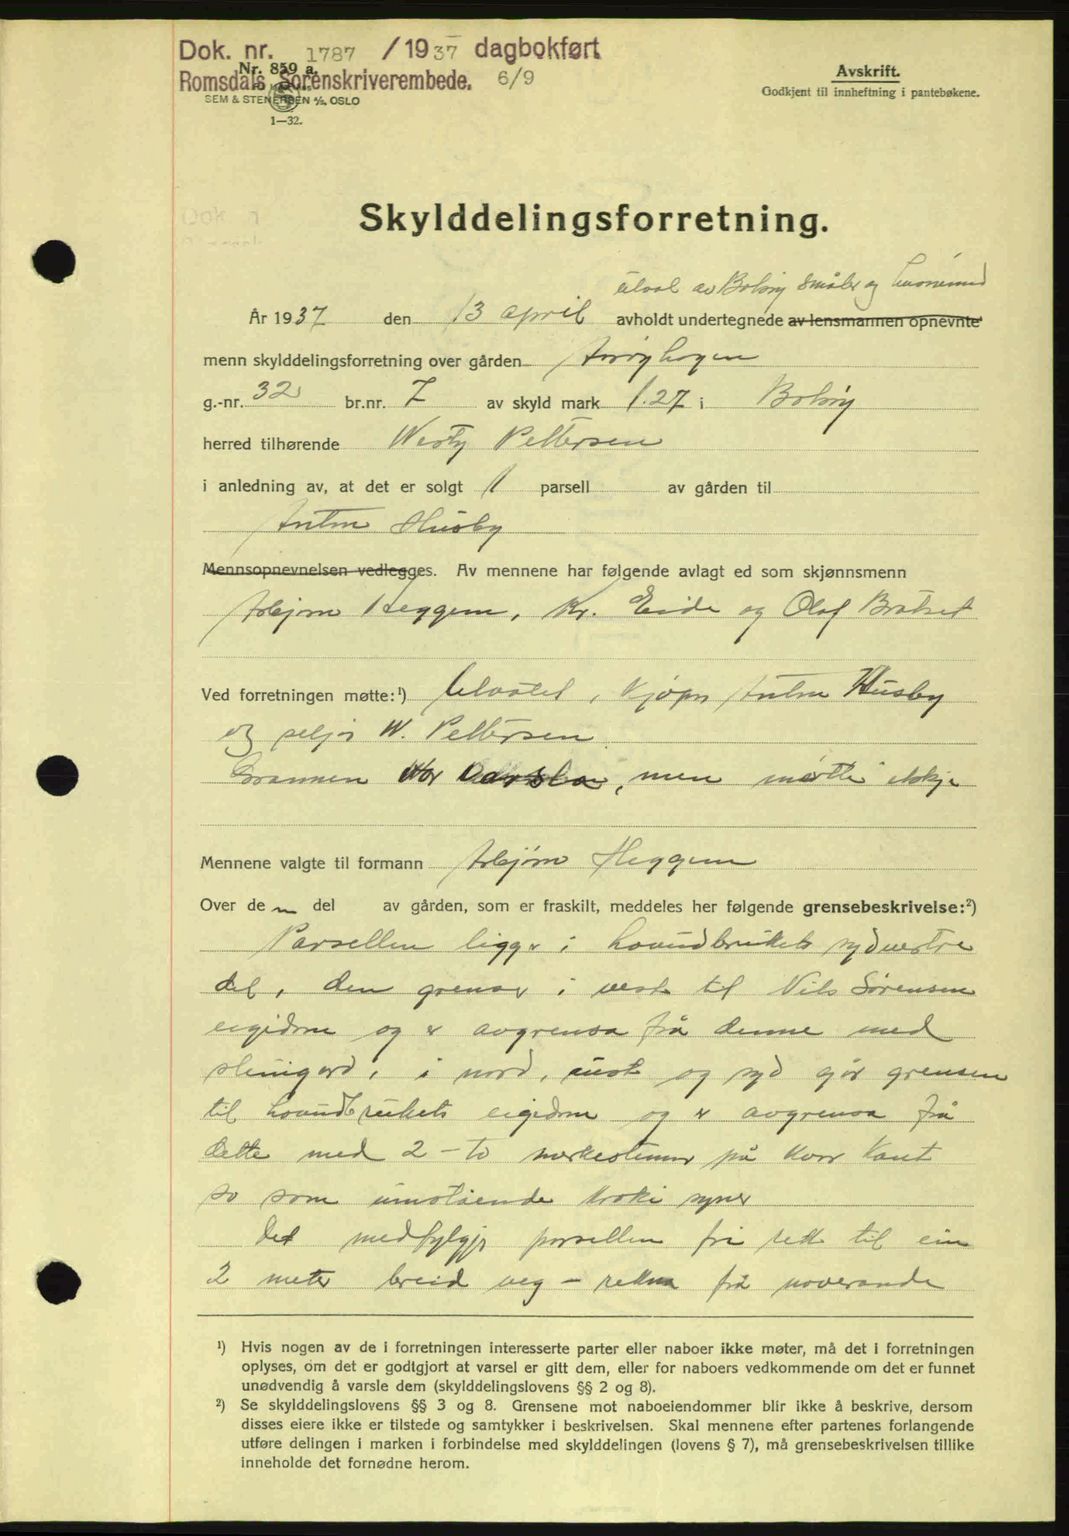 Dok. nr. 1787 / 1937 dagbokført
Nr. 859 a.
Romsdals Sorenskriverembede. 6/9
SEM & STENERSEN A/S, OSLO
1—32.
Avskrift.
Godkjent til innheftning i pantebøkene.
Skylddelingsforretning.
av Bolsøy og
År 1937 den 13 april avholdt undertegnede av lensmannen opnevnte
menn skylddelingsforretning over gården
g.-nr. 32 br.nr. 7 av skyld mark 1.27 i Bolsøy
herred tilhørende Pettersen
i anledning av, at det er solgt 1 parsell av gården til
Anton Husby
Mennsopnevnelsen vedlegges. Av mennene har følgende avlagt ed som skjønnsmenn
Asbjørn Heggem, Kr. Eide og Olaf Bratset
Ved forretningen møtte:¹) kjøpar Anton Husby
og seljar W. Pettersen
Grannen var varsla, men møtte ikkje
Mennene valgte til formann Asbjørn Heggem
Over den del av gården, som er fraskilt, meddeles her følgende grensebeskrivelse:²)
Parsellen ligger i hovudbrukets sydvestre
del, den grensar i vest til Nils Sørensen
eigedom og er avgrensa frå denne med
steingard, i nord, aust og syd gjør grensen
til hovudbrukets eigedom og er avgrensa frå
dette med 2-to merkesteinar på kvar kant
so som umstående kroki syner
Det medfylgjer parsellen fri rett til ein
2 meter breid veg – frå noverande
¹) Hvis nogen av de i forretningen interesserte parter eller naboer ikke møter, må det i forretningen
oplyses, om det er godtgjort at varsel er gitt dem, eller for naboers vedkommende om det er funnet
unødvendig å varsle dem (skylddelingslovens §§ 2 og 8).
²) Se skylddelingslovens §§ 3 og 8. Grensene mot naboeiendommer blir ikke å beskrive, dersom
disses eiere ikke er tilstede og samtykker i beskrivelsen. Skal mennene efter partenes forlangende
utføre delingen i marken i forbindelse med skylddelingen (lovens § 7), må grensebeskrivelsen tillike
inneholde det fornødne herom.